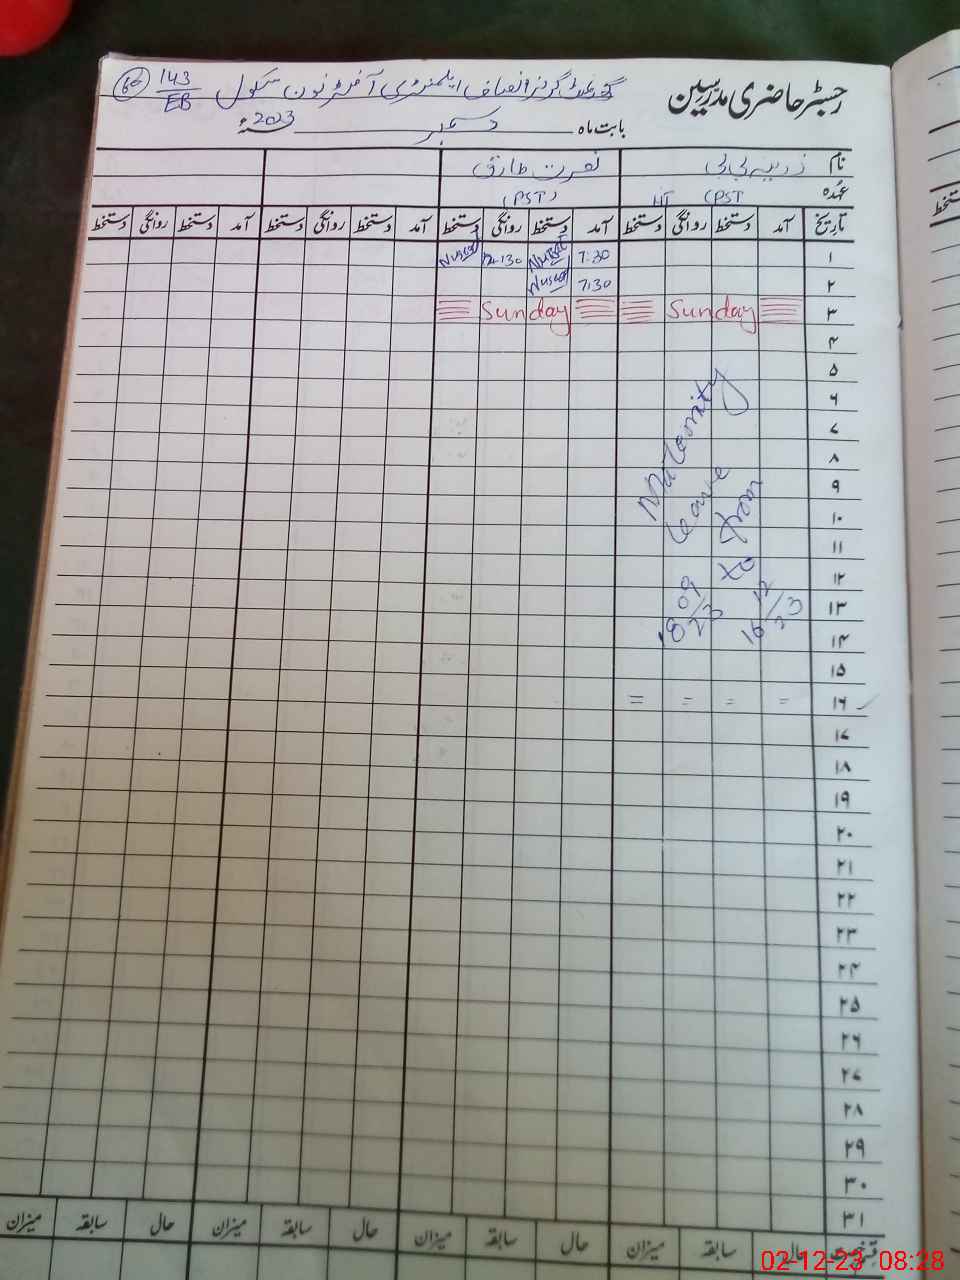 رجسٹر حاضری مدرسین
گورنمنٹ گرلز انصاف ایلمنٹری آفٹر نون سکول 143/EB 66
بابت ماہ دسمبر 2023ء
نام زرینہ بی بی نصرت طارق
عہدہ PST HT (PST)
تاریخ آمد دستخط روانگی دستخط آمد دستخط روانگی دستخط آمد دستخط روانگی دستخط آمد دستخط روانگی دستخط
۱ 7:30 Nusrat 12:30 Nusrat
۲ 7:30 Nusrat
۳ Sunday Sunday
۴
۵
۶
۷
۸
۹
۱۰
۱۱
۱۲
۱۳
۱۴
۱۵
۱۶ = = = =
۱۷
۱۸
۱۹
۲۰
۲۱
۲۲
۲۳
۲۴
۲۵
۲۶
۲۷
۲۸
۲۹
۳۰
۳۱
Maternity
leave
from
to
18/09/23
16/12/23
حال سابقہ میزان حال سابقہ میزان حال سابقہ میزان حال سابقہ میزان
02-12-23 08:28